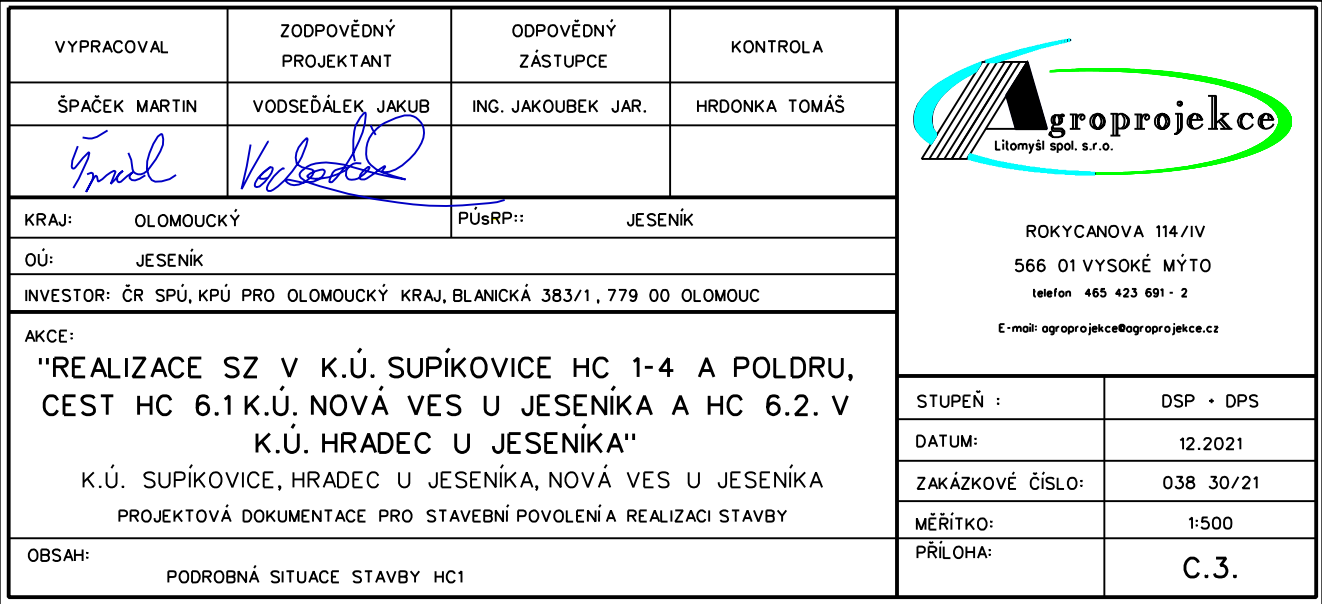 VYPRACOVAL
ZODPOVĚDNÝ
PROJEKTANT
ODPOVĚDNÝ
ZÁSTUPCE
KONTROLA
ŠPAČEK MARTIN
VODSEĎÁLEK JAKUB
ING. JAKOUBEK JAR.
HRDONKA TOMÁŠ
KRAJ: OLOMOUCKÝ
PÚsRP:: JESENÍK
OÚ: JESENÍK
INVESTOR: ČR SPÚ, KPÚ PRO OLOMOUCKÝ KRAJ, BLANICKÁ 383/1, 779 00 OLOMOUC
AKCE:
"REALIZACE SZ V K.Ú. SUPÍKOVICE HC 1-4 A POLDRU,
CEST HC 6.1 K.Ú. NOVÁ VES U JESENÍKA A HC 6.2. V
K.Ú. HRADEC U JESENÍKA"
K.Ú. SUPÍKOVICE, HRADEC U JESENÍKA, NOVÁ VES U JESENÍKA
PROJEKTOVÁ DOKUMENTACE PRO STAVEBNÍ POVOLENÍ A REALIZACI STAVBY
OBSAH:
PODROBNÁ SITUACE STAVBY HC1
Agroprojekce
Litomyšl spol. s.r.o.
ROKYCANOVA 114/IV
566 01 VYSOKÉ MÝTO
telefon 465 423 691 - 2
E-mail: agroprojekce@agroprojekce.cz
STUPEŇ : DSP + DPS
DATUM: 12.2021
ZAKÁZKOVÉ ČÍSLO: 038 30/21
MĚŘÍTKO: 1:500
PŘÍLOHA: C.3.